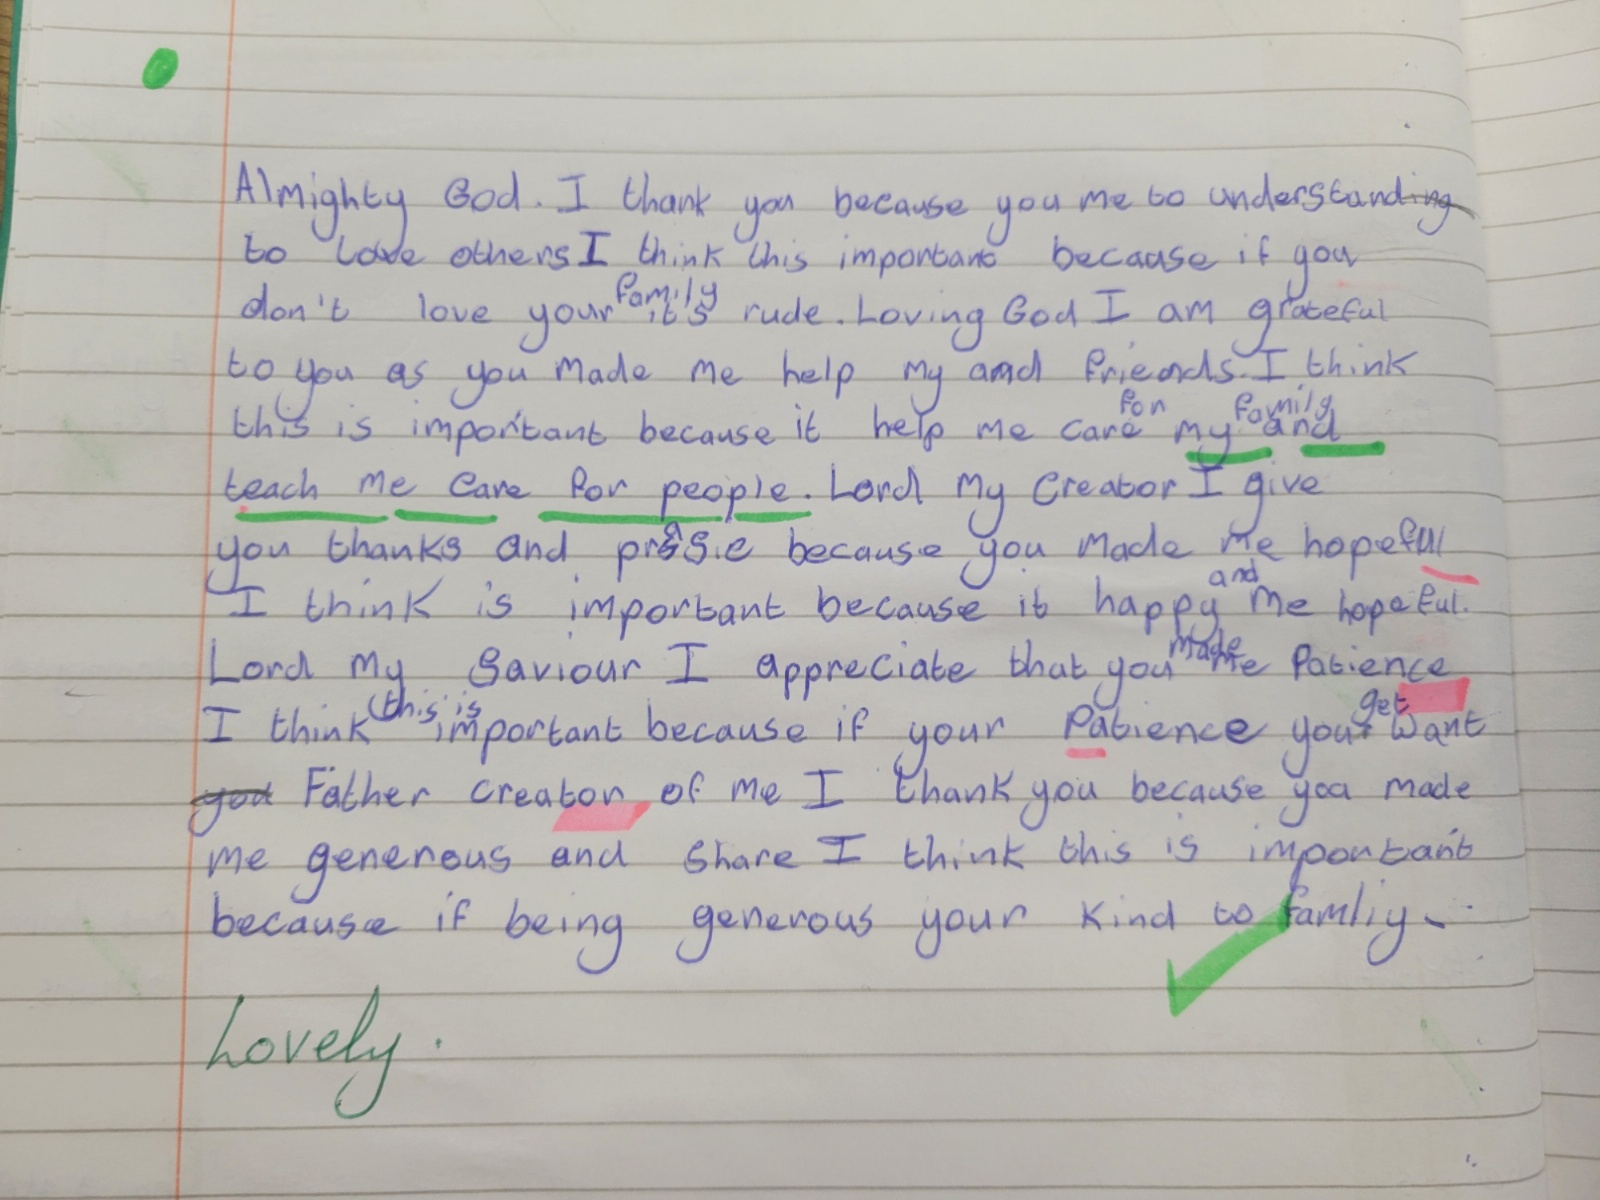 Almighty God. I thank you because you me to understanding
to love others I think this important because if you
don't love your family it's rude. Loving God I am grateful
to you as you made me help my and friends. I think
this is important because it help me care for my family and
teach me care for people. Lord my Creator I give
you thanks and prasie because you made me hopeful
I think is important because it happy and me hopeful.
Lord my Saviour I appreciate that you made me Patience
I think this is important because if your Patience you get want
you Father creator of me I thank you because you made
me generous and share I think this is important
because if being generous your kind to famliy.
Lovely.